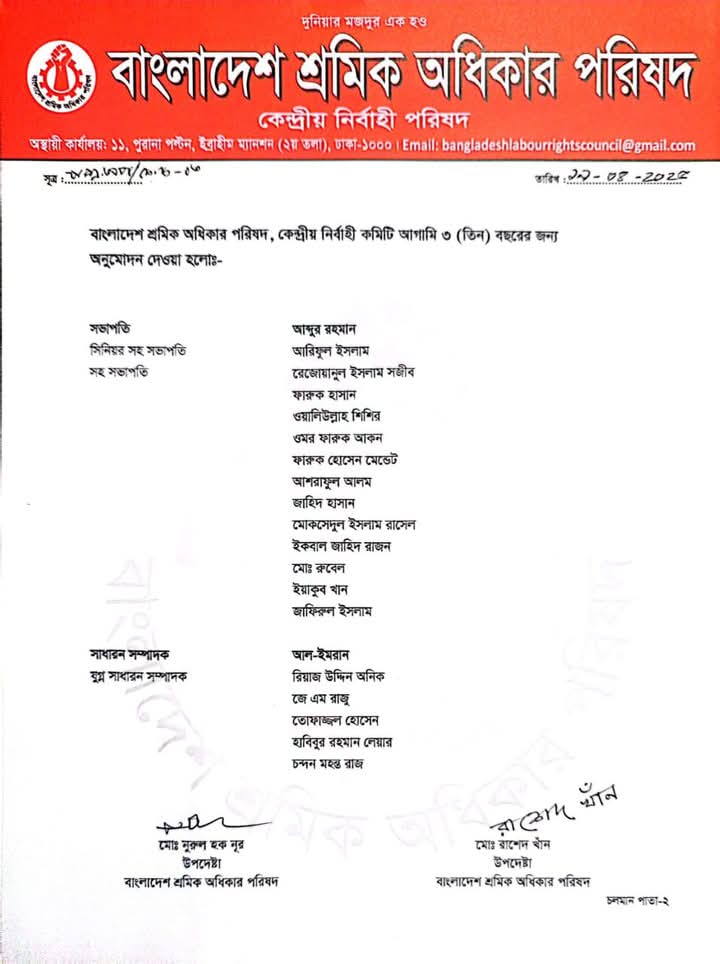 দুনিয়ার মজদুর এক হও
বাংলাদেশ শ্রমিক অধিকার পরিষদ
কেন্দ্রীয় নির্বাহী পরিষদ
অস্থায়ী কার্যালয়: ১১, পুরানা পল্টন, ইব্রাহীম ম্যানশন (২য় তলা), ঢাকা-১০০০। Email: bangladeshlabourrightscouncil@gmail.com
সূত্র :
তারিখ :
বাংলাদেশ শ্রমিক অধিকার পরিষদ, কেন্দ্রীয় নির্বাহী কমিটি আগামি ৩ (তিন) বছরের জন্য
অনুমোদন দেওয়া হলোঃ-
সভাপতি আব্দুর রহমান
সিনিয়র সহ সভাপতি আরিফুল ইসলাম
সহ সভাপতি রেজোয়ানুল ইসলাম সজীব
ফারুক হাসান
ওয়ালিউল্লাহ শিশির
ওমর ফারুক আকন
ফারুক হোসেন মেন্ডেট
আশরাফুল আলম
জাহিদ হাসান
মোকসেদুল ইসলাম রাসেল
ইকবাল জাহিদ রাজন
মোঃ রুবেল
ইয়াকুব খান
জাফিরুল ইসলাম
সাধারন সম্পাদক আল-ইমরান
যুগ্ন সাধারন সম্পাদক রিয়াজ উদ্দিন অনিক
জে এম রাজু
তোফাজ্জল হোসেন
হাবিবুর রহমান লেয়ার
চন্দন মহন্ত রাজ
রাশেদ খাঁন
মোঃ নুরুল হক নূর মোঃ রাশেদ খাঁন
উপদেষ্টা উপদেষ্টা
বাংলাদেশ শ্রমিক অধিকার পরিষদ বাংলাদেশ শ্রমিক অধিকার পরিষদ
চলমান পাতা-২
বাংলাদেশ শ্রমিক অধিকার পরিষদ